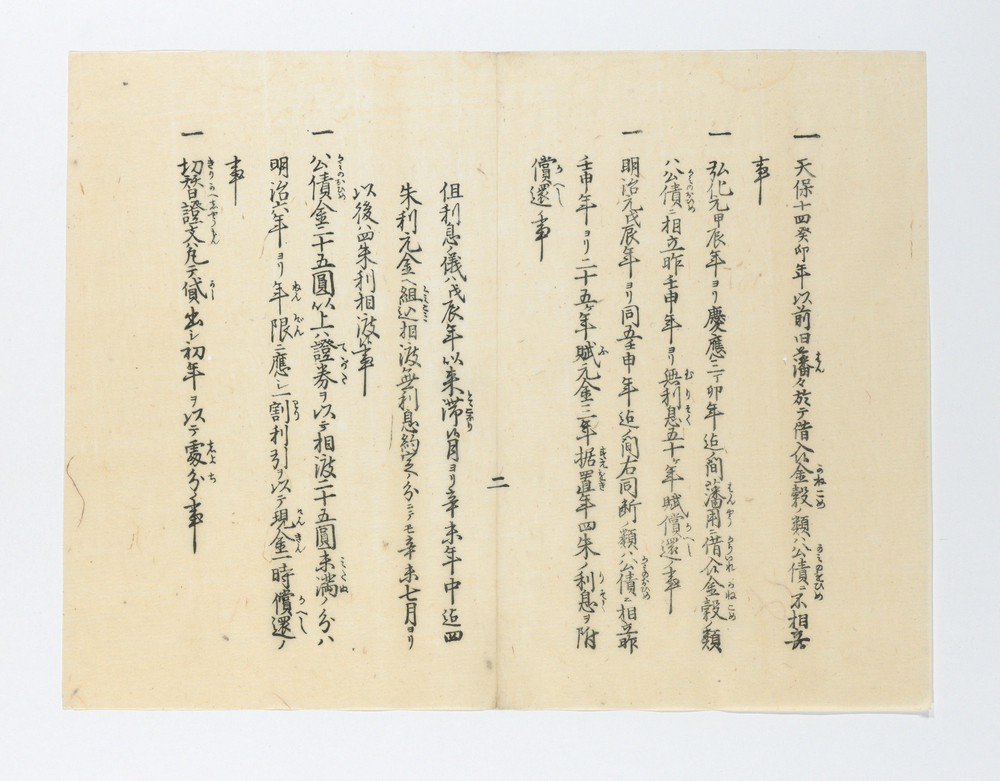 一 天保十四癸卯年以前旧藩々於テ借入金穀ノ類ハ公債ニ不相立
事
一 弘化元甲辰年ヨリ慶應三丁卯年迄ノ間藩用ニ借入金穀ノ類
ハ公債ニ相立昨壬申年ヨリ無利息五十ヶ年賦償還ノ事
一 明治元戊辰年ヨリ同五壬申年迄ノ間右同断ノ類ハ公債ニ相立昨
壬申年ヨリ二十五ヶ年賦元金三年据置年四朱ノ利息ヲ附
償還ノ事
二
但利息ノ儀ハ戊辰年以来滞ル月ヨリ辛未年中迄四
朱利元金ヘ組込相渡無利息約定ノ分ニテモ辛未七月ヨリ
以後ハ四朱利相渡ス事
一 公債金二十五圓以上ハ證券ヲ以テ相渡二十五圓未満ノ分ハ
明治六年ヨリ年限ニ應シ一割利引ヲ以テ現金一時償還ノ
事
一 切替證文ニテ貸出シ初年ヲ以テ處分ノ事